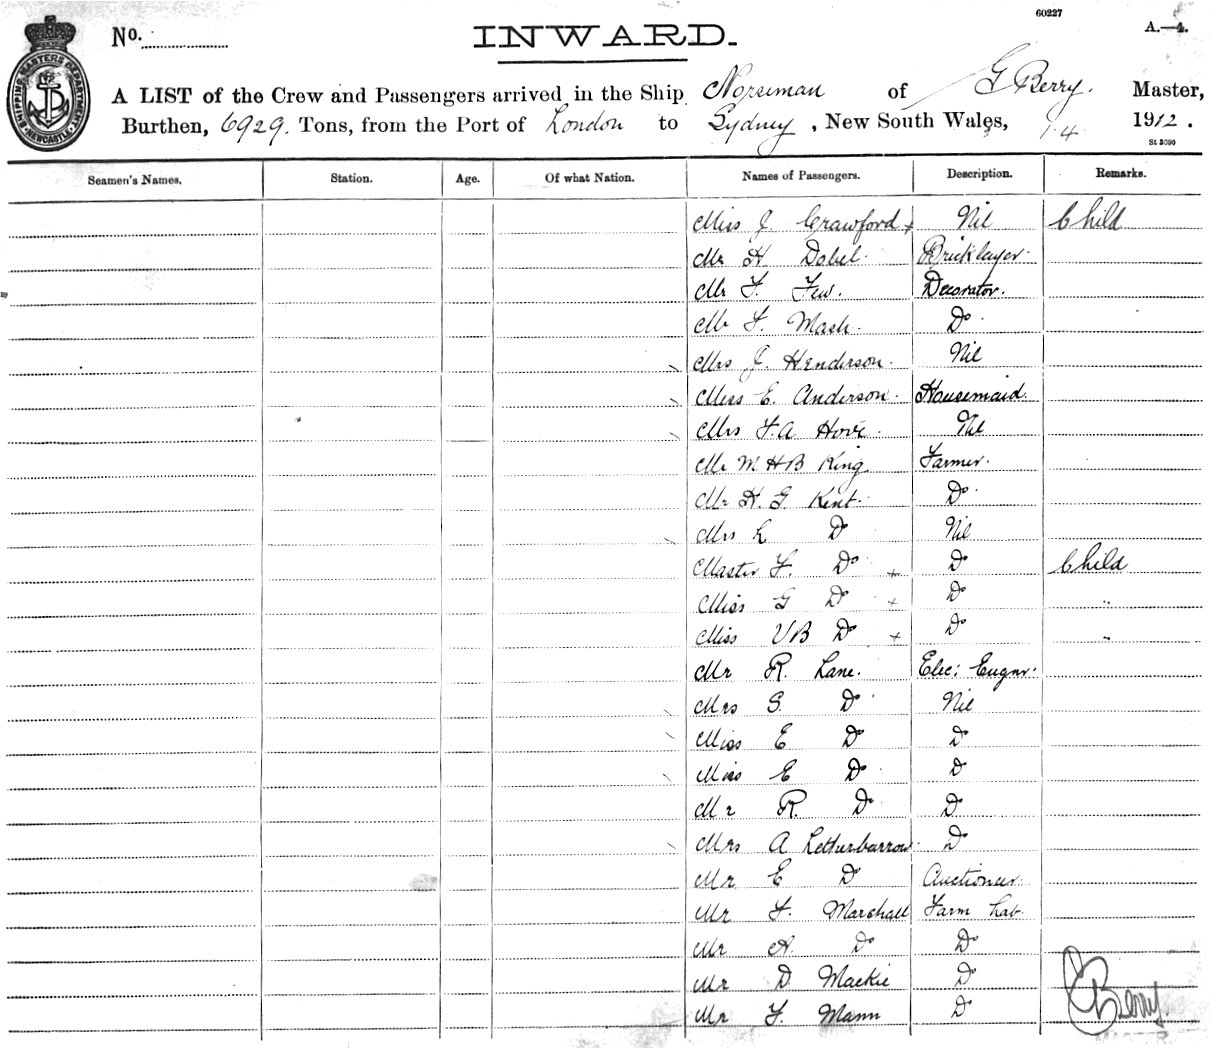 60227
No.
INWARD.
A.—4.
A LIST of the Crew and Passengers arrived in the Ship Norseman of G Berry. Master,
Burthen, 6929. Tons, from the Port of London to Sydney, New South Wales, 1.4 1912.
St 3090
SHIPPING MASTERS DEPARTMENT NEWCASTLE
Seamen's Names. Station. Age. Of what Nation. Names of Passengers. Description. Remarks.
Miss J. Crawford + Nil Child
Mr H Dobel. Bricklayer.
Mr F. Few. Decorator.
Mr F. Mash. Do.
Mrs J. Henderson. Nil
Miss E. Anderson. Housemaid.
Mrs F.A Hove. Nil
Mr M H B King Farmer.
Mr H. G. Kent. Do.
Mrs L Do Nil
Master F. Do + Do Child
Miss G Do + Do "
Miss V B Do + Do "
Mr R. Lane. Elec: Eugnr.
Mrs G. Do. Nil
Miss E Do Do
Miss E Do. Do
Mr R. Do. Do
Mrs A Letherbarrow. Do
Mr E Do Auctioneer.
Mr F. Marshall Farm Lab.
Mr A. Do Do
Mr D Mackie Do
Mr F. Mann Do
G Berry.